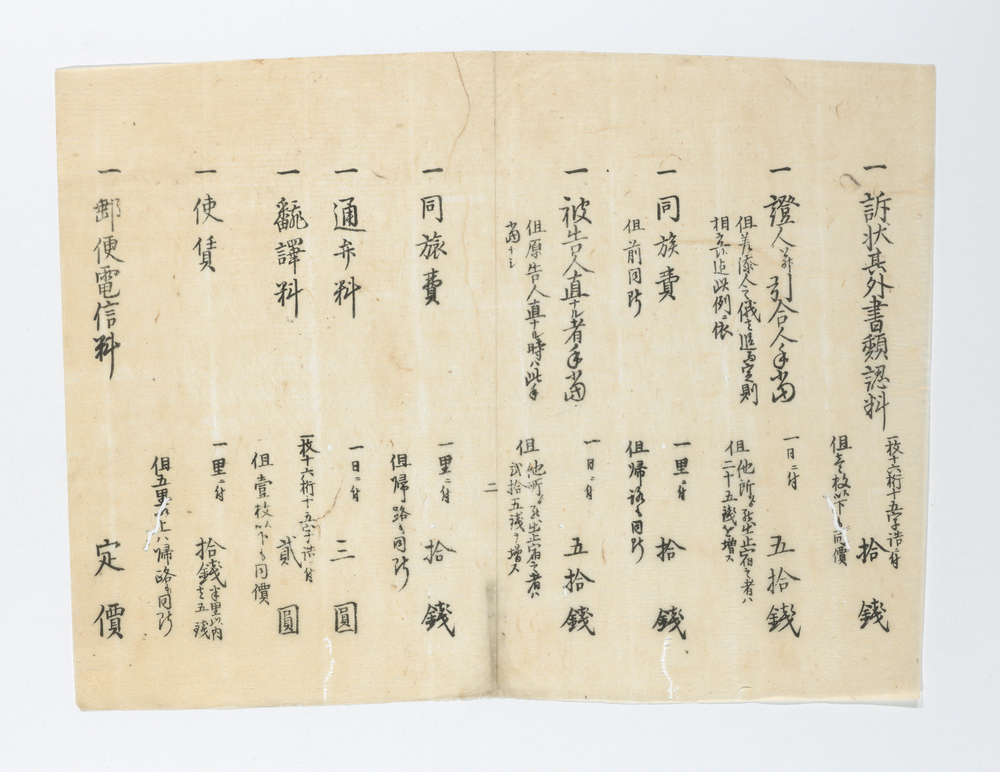 一 訴状其外書類認料 一枚十六桁十五字詰ニ付 拾錢
但壱枚以下同價
一 證人并引合人手當 一日ニ付 五拾錢
但他所ゟ罷出止宿之者ハ
二十五錢ヲ増ス
相立候迄此例ニ依
一 同旅費 一里ニ付 拾錢
但前同断
但帰路も同断
一 被告人直ナル者手當 一日ニ付 五拾錢
但原告人直ナル時ハ此手
當ナシ
但他所ゟ罷出止宿之者ハ
弐拾五錢ヲ増ス
二
一 同旅費 一里ニ付 拾錢
但帰路も同断
一 通弁料 一日ニ付 三圓
一 飜譯料 一枚十六桁十五字詰ニ付 貳圓
但壹枚以下も同價
一 使賃 一里ニ付 拾錢 半里以内
之五錢
但五里以上ハ帰路も同断
一 郵便電信料 定價